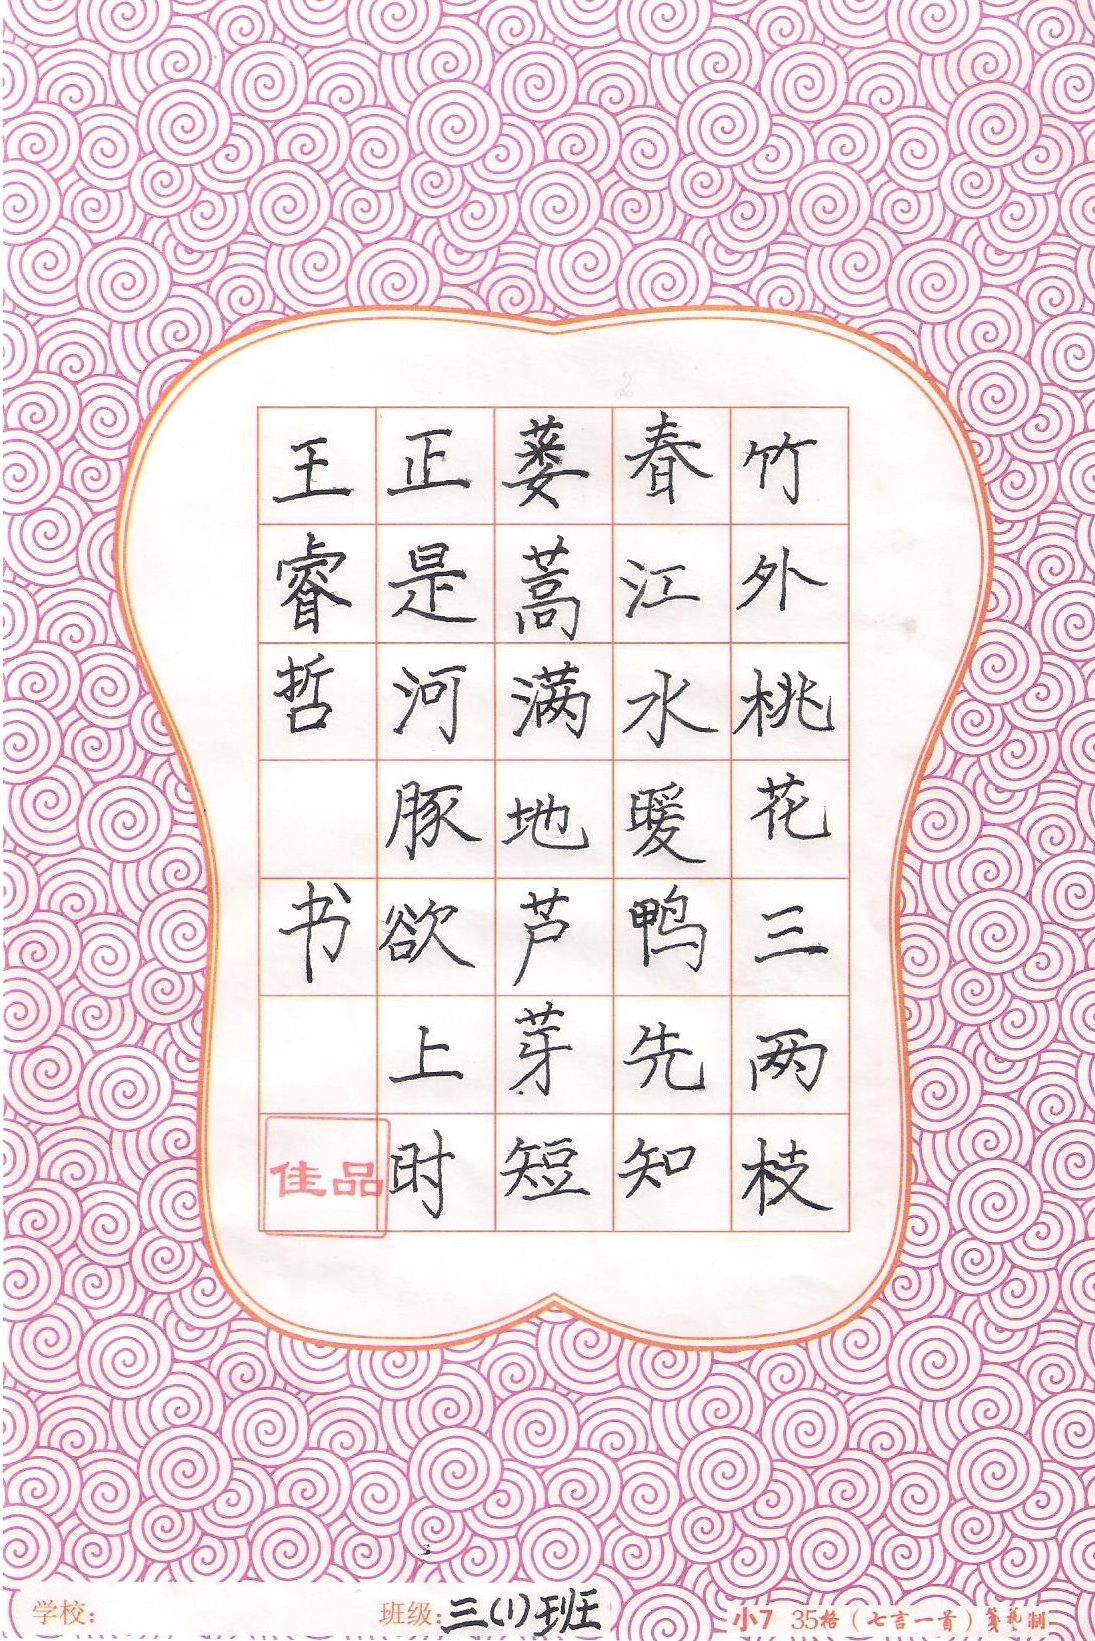 竹外桃花三两枝
春江水暖鸭先知
蒌蒿满地芦芽短
正是河豚欲上时
王睿哲 书
佳品
学校：
班级：三(1)班
小7 35格（七言一首）笺艺制